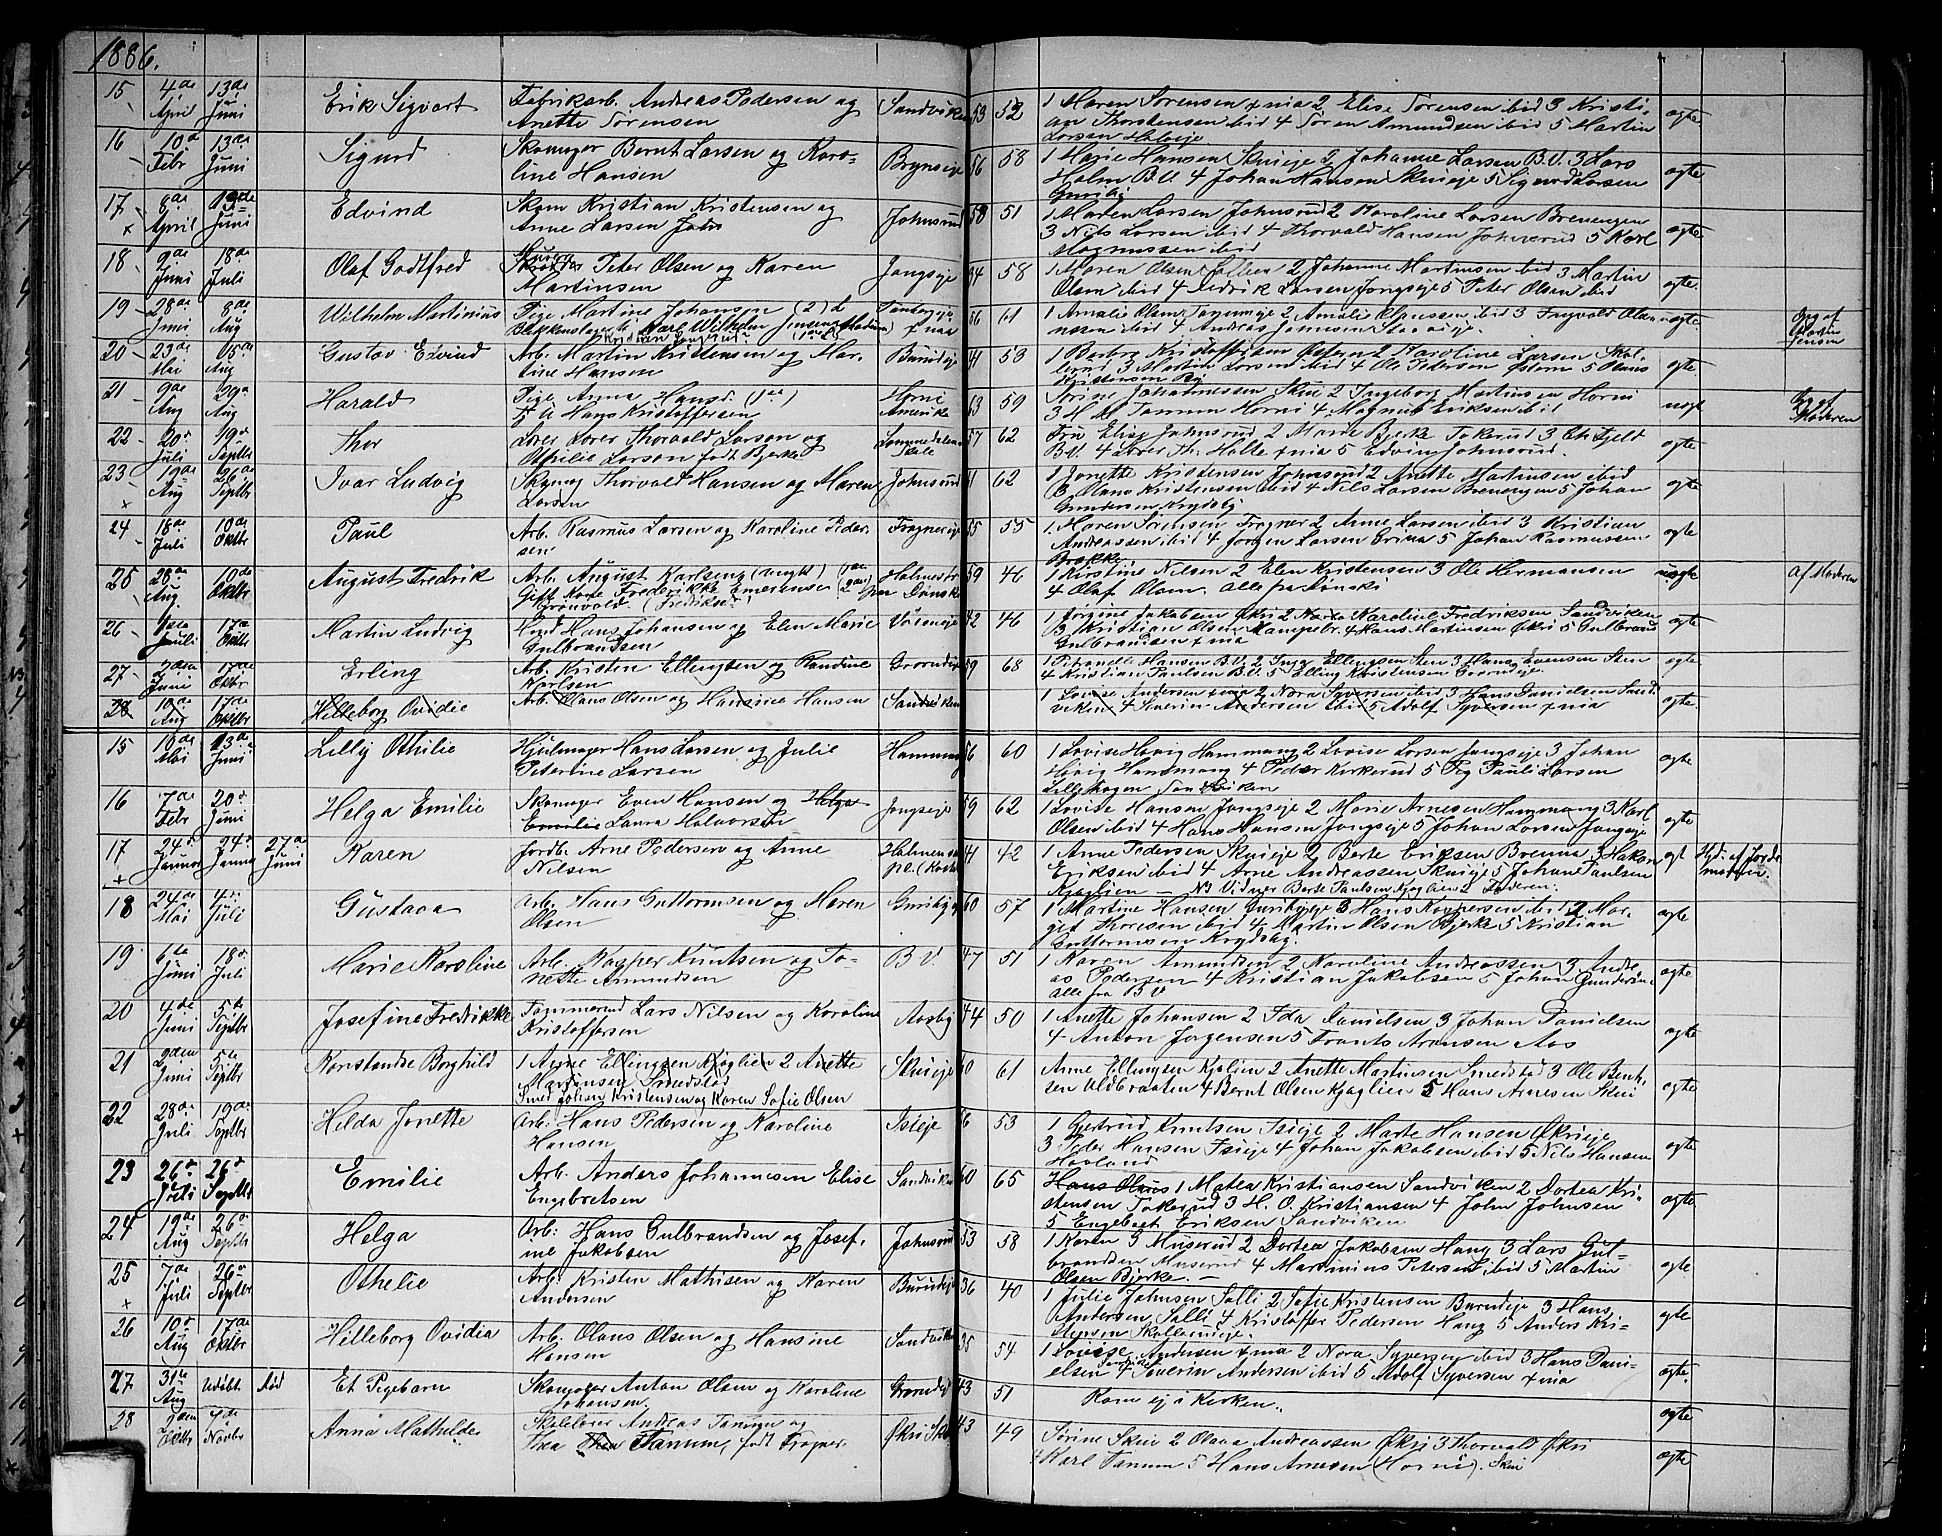 1886.
15 4de April 13de Juni Erik Sigvart Fabrikarb. Andreas Pedersen og Sandviken 53 52 1 Maren Sørensen 2 Elise Sørensen ibid 3 Kristi-
Anette Sørensen an Thorstensen ibid 4 Søren Amundsen ibid 5 Martin ægte
Larsen
16 10d Febr 13de Juni Sigurd Skomager Bernt Larsen og Karo- Brynseje 56 58 1 Marie Hansen Skuieje 2 Johanne Larsen B.V. 3 Lars
line Hansen Holm B.V. 4 Johan Hansen Skuieje 5 Sigurd Larsen ægte
17 9de April Juni Edvind Skom Kristian Kristensen og Johnsrud 58 51 1 Maren Larsen Johnsrud 2 Karoline Larsen Brenengen
Anne Larsen 3 Nils Larsen ibid 4 Thorvald Hansen Johnsrud 5 Karl ægte
Magnussen ibid
18 9de Juni 18de Juli Olaf Godtfred Peter Olsen og Karen Jongseje 34 58 1 Maren Olsen 2 Johanne Martinsen ibid 3 Martin
Martinsen Olsen ibid 4 Fredrik Larsen Jongseje 5 Peter Olsen ibid ægte
19 28de Juni 8de Aug Wilhelm Martinius Pige Martine Johansen (2) 66 61 1 Amalie Olsen 2 Amalie ibid 3 Ingvald Olsen uægte Opg af
Karl Wilhelm Jensen ibid 4 Andreas Moren
Jensen
20 23de Mai 15de Aug Gustav Edvind Arb. Martin Kristensen og Mar- Burudeje 41 53 1 Berte Kristoffersen Østern 2 Karoline Larsen
tine Hansen 3 Martin Larsen ibid 4 Ole Pedersen Østern 5 Olaus ægte
Kristensen By
21 9de Aug 29de Aug Harald Pige Anna Hansd. (1ste) Horni 63 59 Sørine Johannessen Skui 2 Ingeborg Martinsen Horni
Hans Kristoffersen Amerika 3 H M Tanum Horni 4 Magnus Eriksen ibid uægt Opg af
Moderen
22 20d Juli 19d Septbr Thor Lærer Thorvald Larsen og Lommedalens 57 62 Fru Elise Johnsrud 2 Marie Bjerke Tokerud 3
Othilie Larson født Bjerke Skole B.V. 4 Lærer Th. Holte 5 Edvin Johnsrud. ægte
23 19de Aug 26de Septbr Ivar Ludvig Skomag Thorvald Hansen og Maren Johnsrud 62 1 Jonette Kristensen Johnsrud 2 Anette Martinsen ibid
Larsen 3 Hans Kristensen ibid 4 Nils Larsen Brenengen 5 Johan ægte
Gundersen Krydsby
24 18de Juli 10de Oktbr Paul Arb. Rasmus Larsen og Karoline Peder- Frognereje 55 55 1. Maren Sørensen Frogner 2 Anne Larsen ibid 3 Kristian
sen Andreassen ibid 4 Jørgen Larsen 5 Johan Rasmussen ægte
Brække
25 28de Aug 10de Oktbr August Fredrik Arb. August Karlsen (ungk) Holmestr 59 46 1 Kirstine Nilsen 2 Elen Kristensen 3 Ole Hermansen uægte af Moderen
Gift Kone Fredrikke Emerense 4 Olaf Olsen. Alle fra Lønski
Grønvold (Fredriksd)
26 1ste Juli 17de Oktbr Martin Ludvig Hans Johansen og Elen Marie 42 46 1 Jørgine Jakobsen Økri 2 Karoline Fredriksen Sandviken
Gulbrandsen 3 Kristian Olsen 4 Hans Martinsen Økri 5 Gulbrand ægte
Gulbrandsen
27 Juni 17de Oktbr Erling Arb. Kristen Ellingsen og Randine 59 68 1 Petronelle Hansen B.V. 2 Inga Ellingsen Sem 3 Hans Evensen Sem ægte
Karlsen 4 Kristian Paulsen B.V. 5 Elling Kristensen
28 10de Aug 17de Oktbr Hilleborg Ovidie Arb. Olaus Olsen og Hansine Hansen Sandviken 1 Lovise Andersen 2 Nora Syversen ibid 3 Hans Danielsen Sand-
viken 4 Severin Andersen ibid 5 Adolf Syversen ægte
15 18de Mai 13de Juni Lilly Othilie Hjulmager Hans Larsen og Julie Hammang 56 60 1 Lovise Høvig Hammang 2 Lovise Larsen Jongseje 3 Johan
Peterine Larsen Høvig Hammang 4 Peder Kirkerud 5 Pauli Larsen ægte
Lillehagen Sandviken
16 7de Febr 20d Juni Helga Emilie Skomager Even Hansen og Helga Jongseje 59 62 1 Lovise Hansen Jongseje 2 Marie Arnesen Hammang 3 Karl
Emilie Laura Halvorsen Olsen ibid 4 Hans Hansen Jongseje 5 Johan Larsen Jongseje ægte
17 24d Januar 24d Januar 27de Juni Karen Jordb. Arne Pedersen og Anne 41 42 1 Anne Pedersen Skuieje 2 Berte Eriksen Brenna 3 Hakon ægt Hjd. af Jorde-
Nilsen Eriksen ibid 4 Arne Andreassen Skuieje 5 Johan Paulsen moder
Kjaglien — NB Vidner Berte Paulsen Kjaglien & Faderen.
18 24de Mai 4d Juli Gustava Arb. Hans Guttormsen og Maren 60 57 1 Martine Hansen 3 Hans Kaspersen ibid 2 Mar-
Olsen git Thoreson ibid 4 Martin Olsen Bjerke 5 Kristian ægte
Guttormsen Krydsby.
19 6te Juni 18d Juli Marie Karoline Arb. Kasper Knutsen og To- B V 47 51 1 Karen Amundsen 2 Karoline Andreassen 3 Andre-
nette Amundsen as Pedersen 4 Kristian Jakobsen 5 Johan Gundersen ægte
alle fra B V
20 4de Juni 5te Septbr Josefine Fredrikke Tømmermd Lars Nilsen og Karoline Aasby 44 50 1 Anette Johansen 2 Ida Danielsen 3 Johan Danielsen
Kristoffersen 4 Anton Jørgensen 5 Frants Aronsen Aas ægte
21 9den Juni 5te Septbr Konstanse Borghild 1 Anne Ellingsen Kjaglien 2 Anette Skuieje 60 61 Anne Ellingsen Kjalien 2 Anette Martinsen Smedstad 3 Ole Bent-
Martinsen Smedstad sen Uldbraaten 4 Bernt Olsen Kjaglien 5 Hans Arnesen Skui ægte
Smed Johan Kristensen og Karen Sofie Olsen
22 28de Juli 19de Septbr Helda Jonette Arb. Hans Pedersen og Karoline Isieje 53 1 Gjertrud Knutsen Isieje 2 Marte Hansen Økrieje
Hansen 3 Peder Hansen Isieje 4 Johan Jakobsen ibid 5 Nils Hansen ægte
Hovland
23 26d Juli 26d Septbr Emilie Arb. Anders Johannesen Elise Sandviken 60 65 Hans Olsens 1 Matea Kristiansen Sandviken 2 Dortea Kri-
Engebretsen stensen Tokerud 3 H. O. Kristiansen 4 John Johnsen ægte
5 Engebret Eriksen Sandviken
24 19de Aug 26d Septbr Helga Arb: Hans Gulbrandsen og Josef- Johnsrud 53 58 1 Karen 3 Muserud 2 Dortea Jakobsen Haug 3 Lars Gul-
ine Jakobsen brandsen Muserud 4 Martinius Petersen ibid 5 Martin ægte
Olsen Bjerke. —
25 7de Juli 26d Septbr Othelie Arb. Kristen Mathisen og Karen Burudeje 36 40 1 Julie Johnsen Salli 2 Sofie Kristensen Burudeje 3 Hans
Andersen Andersen Salli 4 Kristoffer Pedersen Haug 5 Anders Kri- ægte
stensen
26 10d Aug 17de Oktbr Hilleborg Ovidia Arb. Olaus Olsen og Hansine Sandviken 35 54 1 Lovise Andersen 2 Nora Syversen ibid 3 Hans Dani-
Hansen elsen Sandviken 4 Severin Andersen ibid 5 Adolf Syversen ægte.
27 31te Aug Udøbt død Et Pigebarn Skomager Anton Olsen og Karoline 43 51 Kom ej i Kirken. ægte
Johansen
28 Oktbr 7de Novbr Anna Mathilde Skolelærer Andreas Tanum og Økri Skole 43 49 Sørine Skui 2 Olava Andreassen Økri 3 Thorvald Økri
Thea Thea Tanum, født Frogner. 4 Karl Tanum 5 Hans Arnesen (Horni). Skui ægte